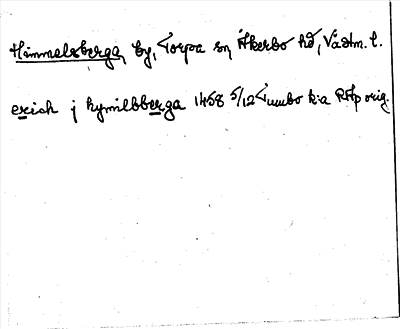 Himmelsberga, by, Torpa sn, Åkerbo hd, Västm. l.
erich j hymilsberga 1458 5/12 Tumbo k:a RAp orig.